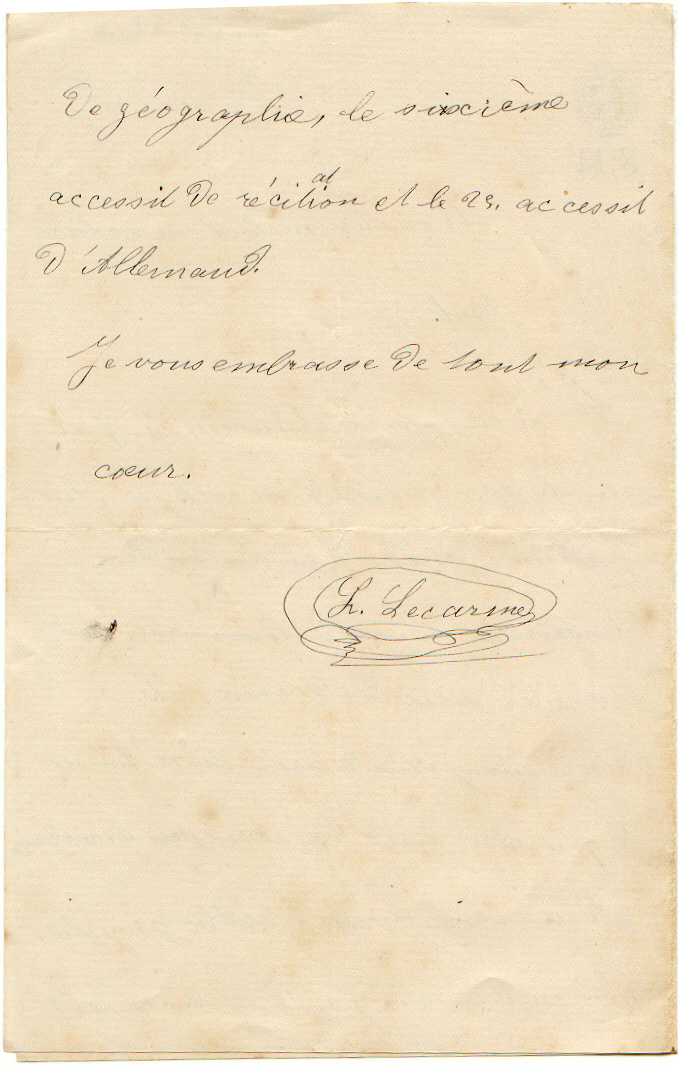 de géographie, le sixième
accessit de récitation et le 2e. accessit
d'Allemand.
Je vous embrasse de tout mon
cœur.
L. Lecarme